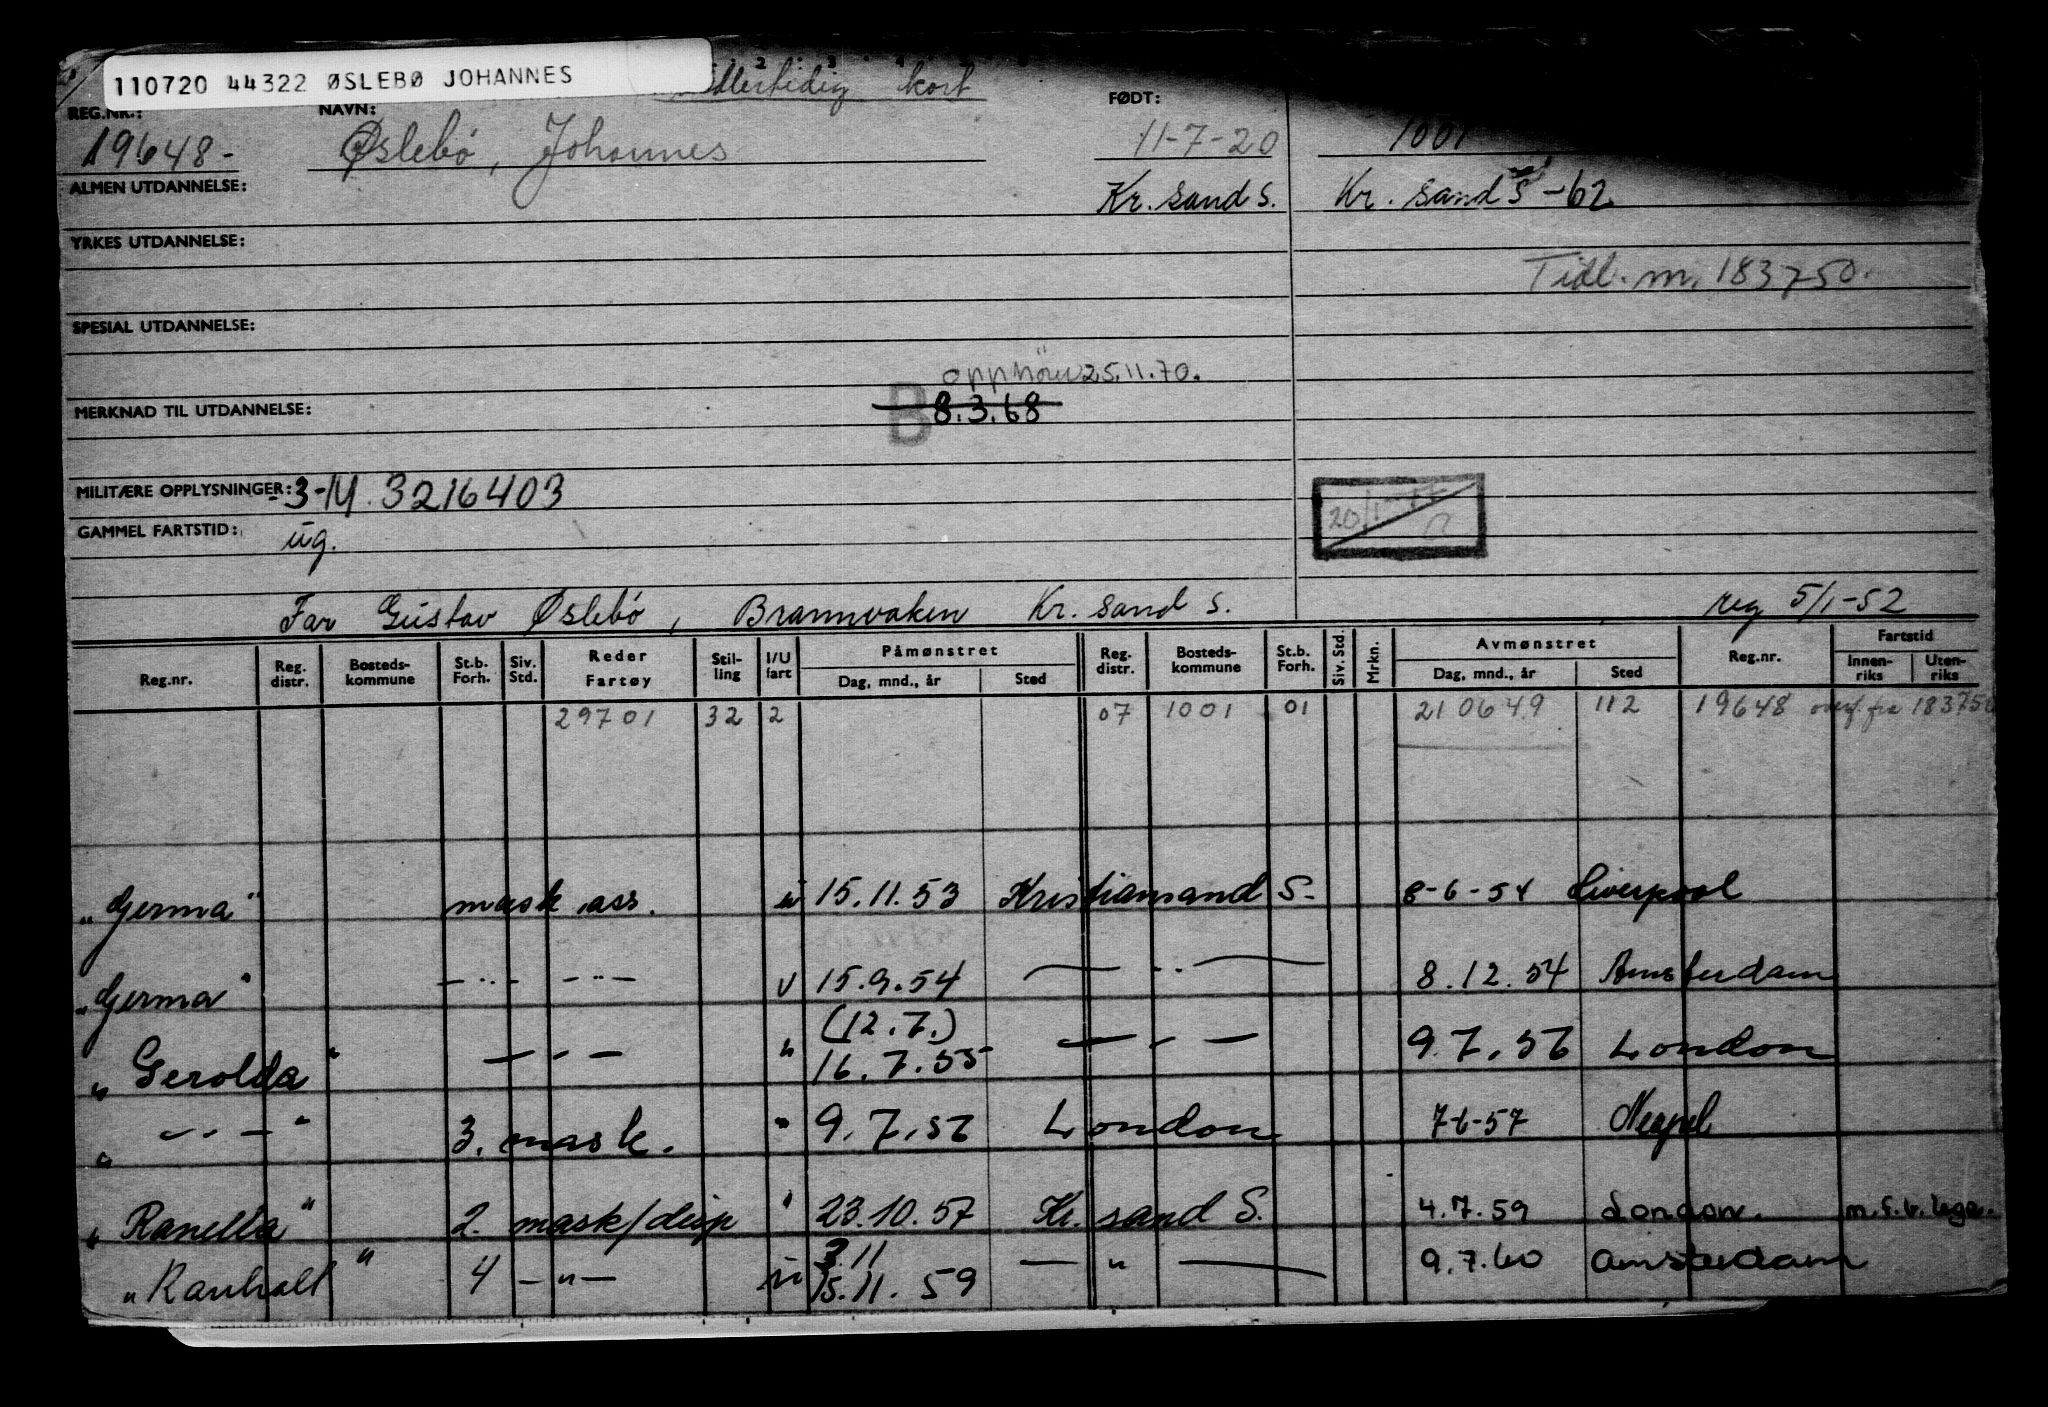 110720 44322 ØSLEBØ JOHANNES
kort
REG.NR.: NAVN: FØDT:
19648- Øslebø, Johannes 11-7-20 1001
ALMEN UTDANNELSE: Kr. sand S. Kr. sand S -62
YRKES UTDANNELSE:
Tidl. m. 183750.
SPESIAL UTDANNELSE:
opphører 25.11.70.
MERKNAD TIL UTDANNELSE: B 8.3.68
MILITÆRE OPPLYSNINGER: 3-M. 3216403
GAMMEL FARTSTID: ug.
Far Gustav Øslebø, Brannvakten Kr. sand S. reg 5/1-52
Reg.nr. Reg. distr. Bosteds-kommune St.b. Forh. Siv. Std. Reder Fartøy Stil-ling I/U fart Påmønstret Dag, mnd., år Sted Reg. distr. Bosteds-kommune St.b. Forh. Siv. Std. Mrkn. Avmønstret Dag, mnd., år Sted Reg.nr. Fartstid Innen-riks Uten-riks
29701 32 2 07 1001 01 210649 112 19648 overf. fra 183750
"Germa" mask.ass. u 15.11.53 Kristiansand S. 8-6-54 Liverpool
"Germa" -"- -"- u 15.9.54 -"- 8.12.54 Amsterdam
(12.7.)
"Gerolda" -"- " 16.7.55 -"- 9.7.56 London
" -"- " 3. mask. " 9.7.56 London 7-6-57 Neapel
"Ranella" 2. mask/disp " 23.10.57 Kr. sand S. 4.7.59 London. m.s.v. lege.
3.11
"Ranholt" 4 -"- u 15.11.59 -"- 9.7.60 Amsterdam